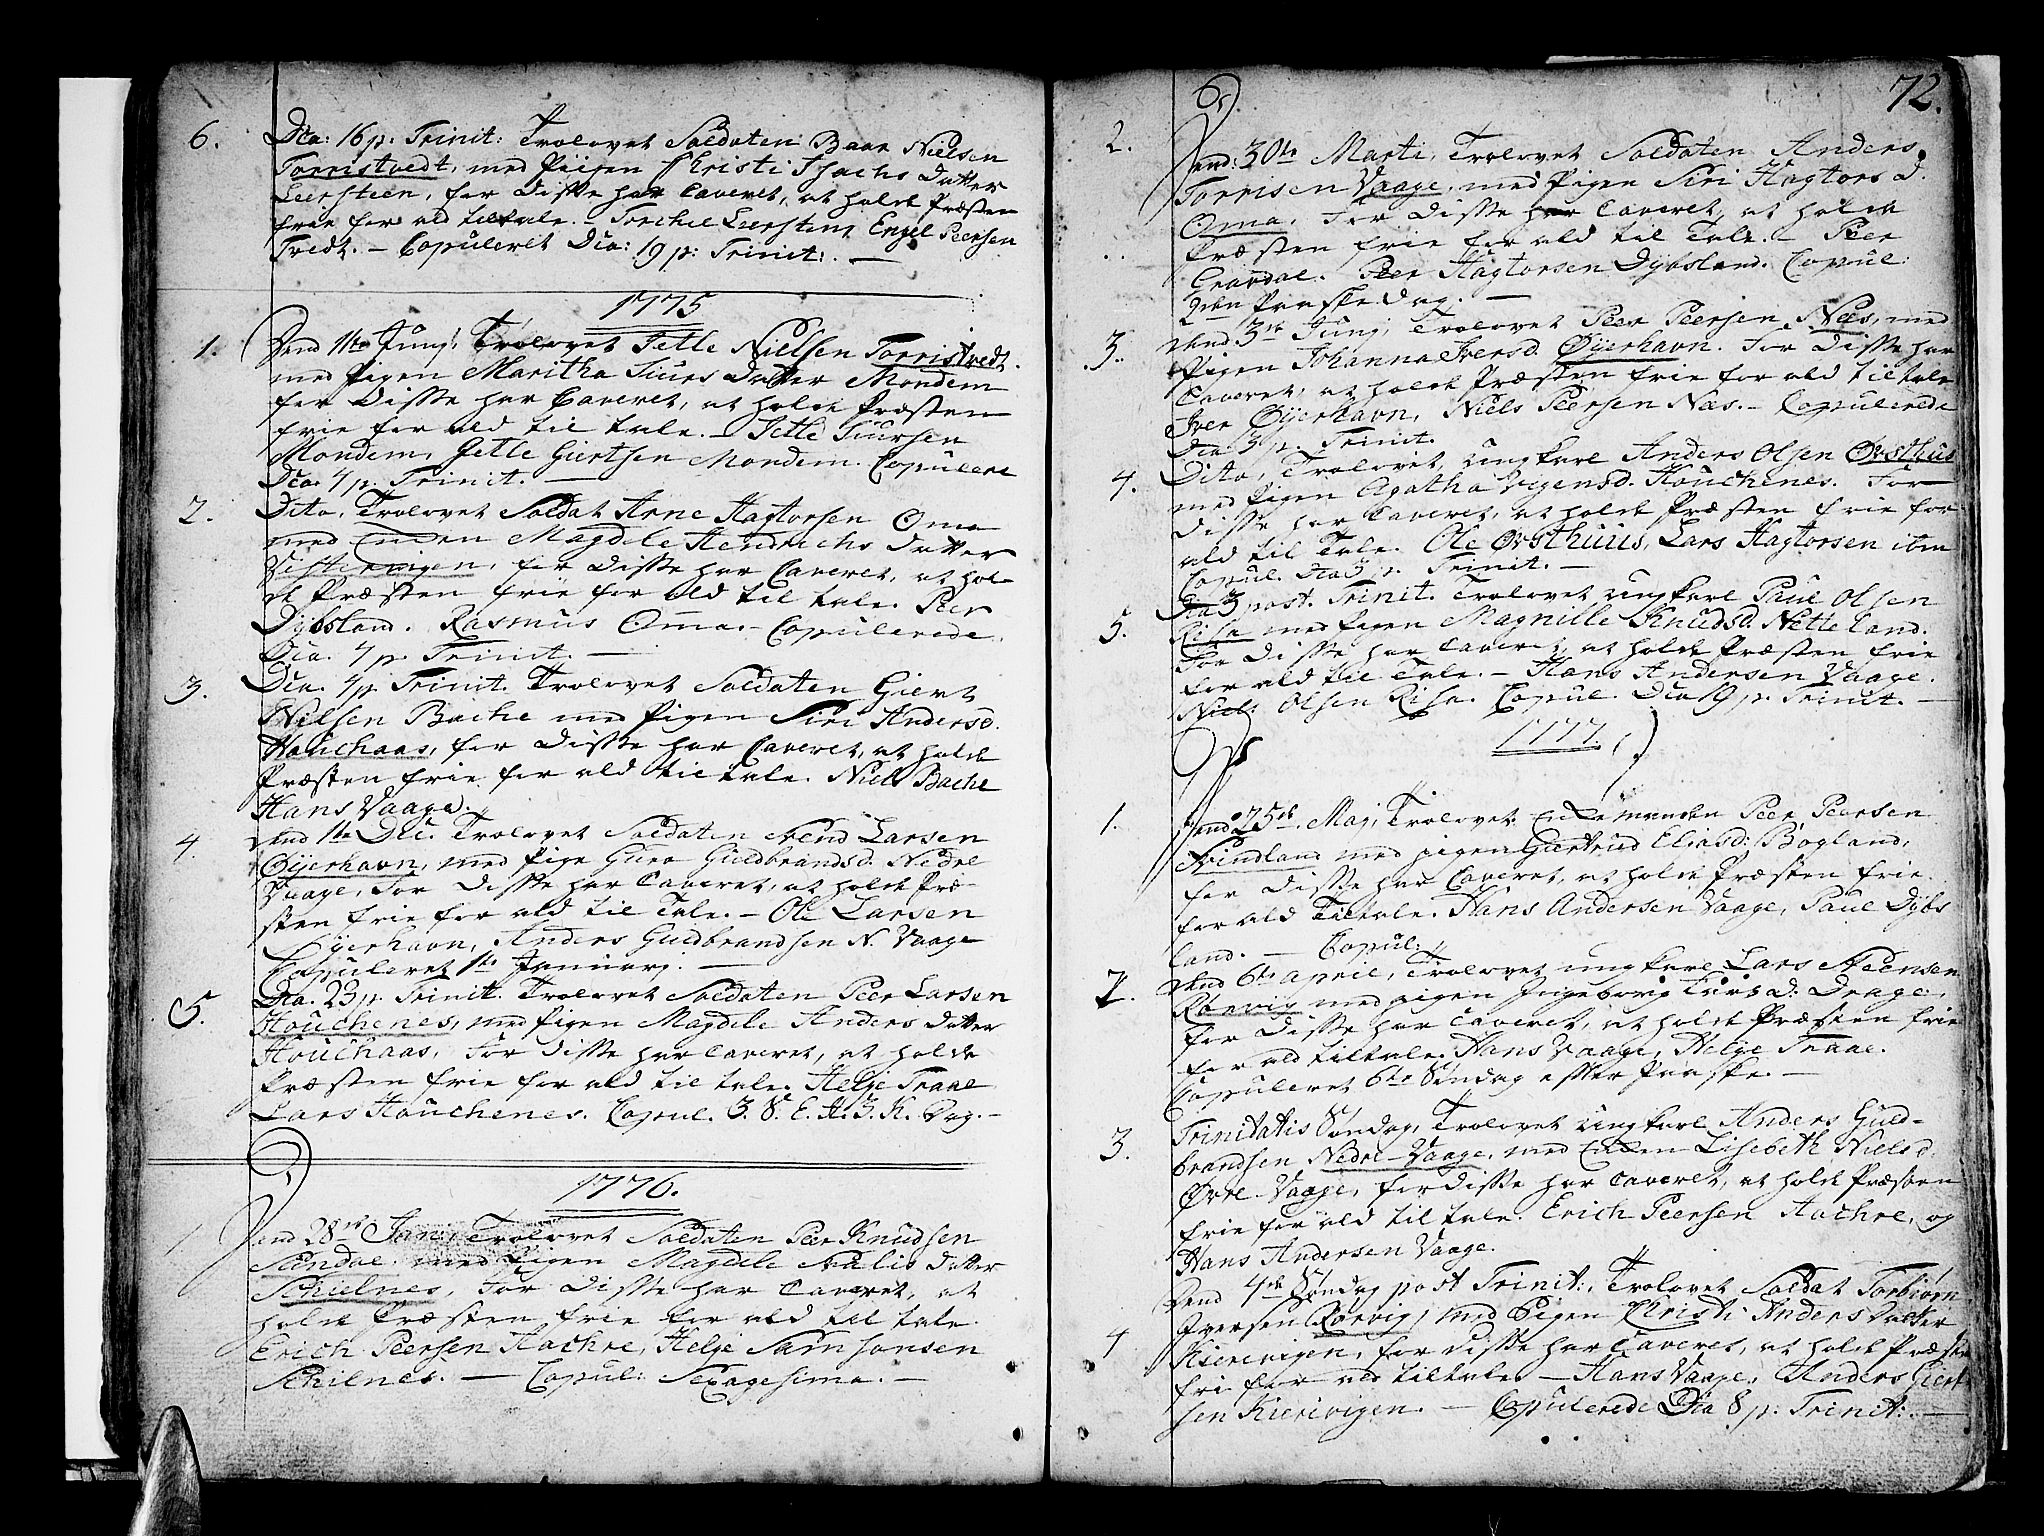 6. Dca: 16 p: Trinit: Trolovet Soldaten Baar Nielsen
Torristvedt, med Piigen Christi Isachs Datter
Leersteen, for Disse har Caveret, at holde Præsten
frie for ald tiltale. Torchel Leersteen, Engel Peersen
Tvedt. – Copuleret Dca: 19 p: Trinit: –
1775
1. Dend 11te Junj, Trolovet Jetle Nielsen Torristvedt.
med Pigen Maritha Siurs Datter Mondem
for Disse har Caveret, at holde Præsten
frie for ald til tale. – Jetle Siursen
Mondem, Jetle Giertsen Mondem. Copulere
Dca. 4 p. Trinit. –
2. Dito, Trolovet Soldat Arne Hagtorsen Oma
med Enken Magdele Hendrichs Datter
Vestervigen, for Disse har Caveret, at hol-
de Præsten frie for ald til tale. Peer
Dybsland. Rasmus Oma. – Copulerede
Dca. 4 p. Trinit. –
3. Dca. 4 p. Trinit. Trolovet Soldaten Giert
Nilsen Bache med Pigen Siri Andersd.
Houchaas, for Disse har Caveret, at holde
Præsten frie for ald til tale. Niels Bache
Hans Vaage.
4. Dend 1te Dec. Trolovet Soldaten Svend Larsen
Øyerhavn, med Pige Guro Guldbrandsd. Nedre
Vaage, For Disse har Caveret, at holde Præ-
sten frie for ald til Tale. – Ole Larsen
Øyerhavn, Anders Guldbrandsen N. Vaage
Copuleret 1te Januarj. –
5. Dca. 23 p. Trinit. Trolovet Soldaten Peer Larsen
Houchenes, med Pigen Magdele Anders Datter
Houchaas, For Disse har Caveret, at holde
Præsten frie for ald til tale. Helje Traae
Lars Houchenes. Copul. 3. S. E. H. 3. K. Dag. –
1776.
1 Dend 28de Jan: Trolovet Soldaten Peer Knudsen
Sandae med Pigen Magdele Datter
Schielnes, For Disse har Caveret, at
holde Præsten frie for ald til tale.
Erich Peersen Aachre, Helje Samsonsen
Schielnes. – Copul: Sexagesima. –
72.
2. Dend: 30te Marti, Trolovet Soldaten Anders
Torrisen Vaage, med Pigen Siri Hagtors D.
Oma, For Disse har Caveret, at holde
Præsten frie for ald til Tale. – Peer
Gravdal. Peer Hagtorsen Dybsland. Copul:
2den Paaske Dag. –
3. Dend 3de Junj, Trolovet Peer Peersen Næs, med
Pigen Johanna Iversd. Øyerhavn. For Disse har
Caveret, at holde Præsten frie for ald til tale
Iver Øyerhavn, Niels Peersen Næs. – Copulerede
Dca 3 p. Trinit.
4. Dito, Trolovet, ungkarl Anders Olsen Øvsthus
med Pigen Agatha Houchenes. For
Disse har Caveret, at holde Præsten frie for
ald til Tale. Ole Øvsthuus, Lars Hagtorsen ibm
Copul. Dca 3 p. Trinit. –
5. Dca 3 post. Trinit. Trolovet ungkarl Paul Olsen
Risa med Pigen Magnille Knudsd. Netteland.
For Disse har Caveret, at holde Præsten frie
for ald til Tale. – Hans Andersen Vaage.
Niels Olsen Risa. Copul. Dca 19 p. Trinit. –
1777.
1. Dend 25de Maj, Trolovet Enkemanden Peer Peersen
Svindland med pigen Giertrud Eliasd: Bogland,
for Disse har Caveret, at holde Præsten frie
for ald Tiltale. Hans Andersen Vaage, Paul Dybs
land. – Copul:
2. Dend 6te april, Trolovet ungkarl Lars Steensen
Rørvig med pigen Ingeborg D: Drage,
for Disse har Caveret, at holde Præsten frie
for ald tiltale. Hans Vaage, Helje Traae.
Copuleret 6te Søndag efter Paaske. –
3. Trinitatis Søndag, Trolovet Ungkarl Anders Guld-
brandsen Nedre-Vaage, med Enken Lisebeth Nielsd.
Øvre Vaage, for disse har Caveret, at holde Præsten
frie for ald til tale. Erich Peersen Aachre, og
Hans Andersen Vaage.
4 Dend 4de Søndag post Trinit:, Trolovet Soldat Torbiørn
Iversen Rørvig, med Pigen Christi Anders Datter
Kierevigen, for disse har Caveret, at holde Præste
fri for ald tiltale. – Hans Vaage, Anders Giert
sen Kierivigen. – Copulerede Dca 8 p. Trinit: –